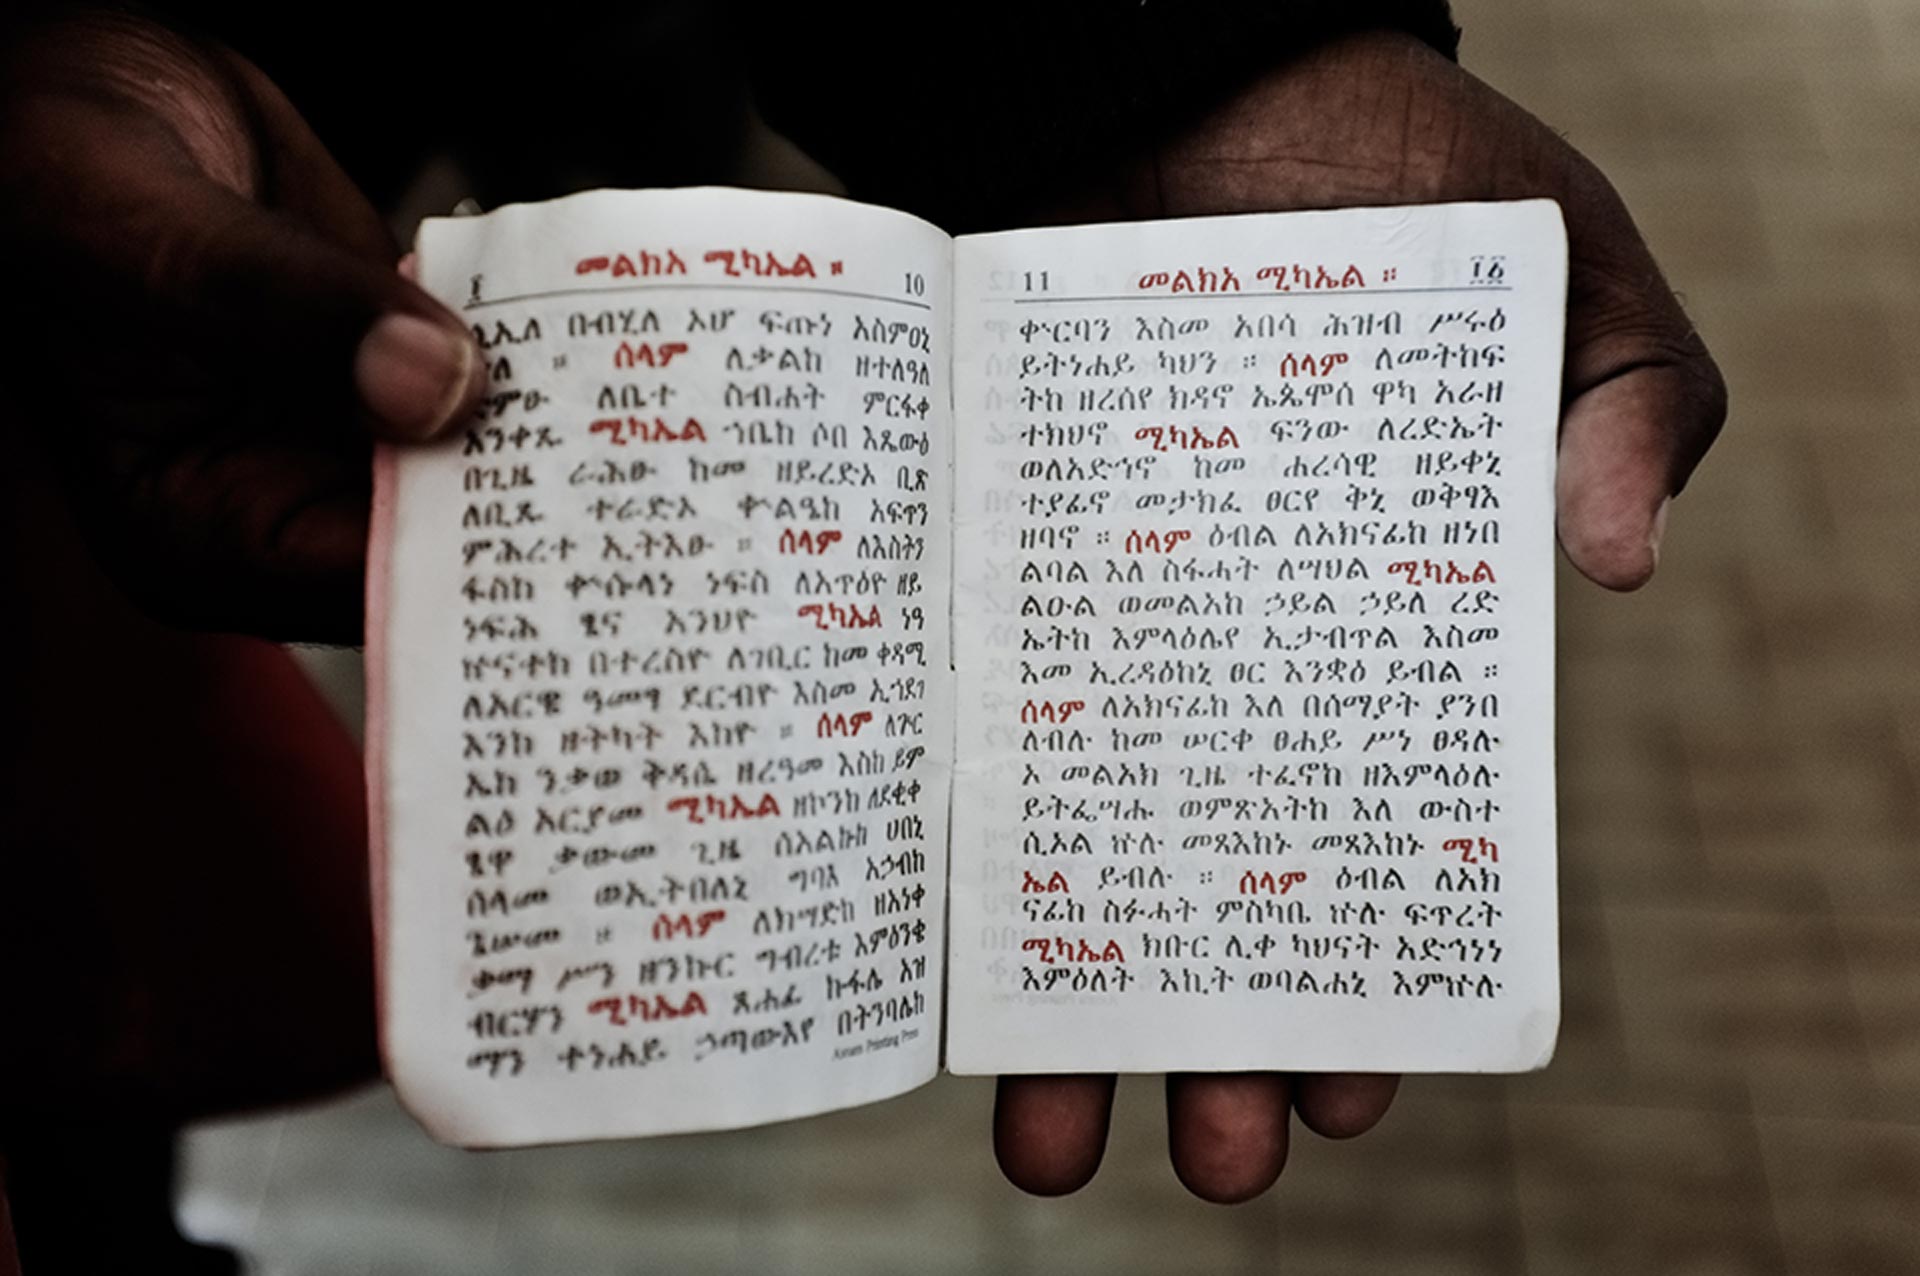 ፲ መልክአ ሚካኤል ። 10
ሲኢለ በብሂለ ኦሆ ፍጡነ አስምዐኒ
ቃለ ። ሰላም ለቃልከ ዘተለዓለ
ድምፁ ለቤተ ስብሐት ምርፋቀ
አንቀጹ ሚካኤል ኀቤከ ሶበ እጼውዕ
በጊዜ ራሕፁ ከመ ዘይረድኦ ቢጽ
ለቢጹ ተራድኦ ቍልዔከ አፍጥን
ምሕረተ ኢትእፁ ። ሰላም ለእስትን
ፋስከ ቍሱላነ ነፍስ ለአጥዕዮ ዘይ
ነፍሕ ጼና አንህዮ ሚካኤል ነዓ
ኵናተከ በተረስዮ ለገቢር ከመ ቀዳሚ
ለአርዌ ዓመፃ ደርብዮ እስመ ኢጎደገ
እንከ ዘትካት እከዮ ። ሰላም ለጕር
ኤከ ንቃወ ቅዳሴ ዘረዓመ እስከ ይም
ልዕ አርያመ ሚካኤል ዘኮንከ ለደቂቀ
ጼዋ ቃውመ ጊዜ ሰአልኩከ ሀበኒ
ሰላመ ወኢትበለኒ ግባእ አኃብከ
ጌሠመ ። ሰላም ለክሣድከ ዘአነቀ
ቃማ ሥን ዘንኩር ግብረቱ እምዕንቈ
ብርሃን ሚካኤል ጸሐፊ ኩፋሌ አዝ
ማን ተነሐይ ኃጣውእየ በትንባሌከ
Axum Printing Press
11 መልክአ ሚካኤል ። ፲፩
ቍርባን እስመ አበሳ ሕዝብ ሥሩዕ
ይትነሐይ ካህን ። ሰላም ለመትከፍ
ትከ ዘረሰየ ክዳኖ ኤጴሞሰ ዋካ አራዘ
ተክህኖ ሚካኤል ፍንው ለረድኤት
ወለአድኅኖ ከመ ሐረሳዊ ዘይቀኒ
ተያፊኖ መታክፈ ፀርየ ቅኒ ወቅፃእ
ዘባኖ ። ሰላም ዕብል ለአክናፊከ ዘነበ
ልባል እለ ስፋሓት ለሣህል ሚካኤል
ልዑል ወመልአከ ኃይል ኃይለ ረድ
ኤትከ እምላዕሌየ ኢታብጥል እስመ
እመ ኢረዳዕከኒ ፀር እንቋዕ ይብል ።
ሰላም ለአክናፊከ እለ በሰማያት ያንበ
ለብሉ ከመ ሠርቀ ፀሐይ ሥነ ፀዳሉ
ኦ መልአክ ጊዜ ተፈኖከ ዘእምላዕሉ
ይትፌሣሑ ወምጽአትከ እለ ውስተ
ሲኦል ኵሉ መጻእከኑ መጻእከኑ ሚካ
ኤል ይብሉ ። ሰላም ዕብል ለአክ
ናፊከ ስፉሓት ምስካቤ ኵሉ ፍጥረት
ሚካኤል ክቡር ሊቀ ካህናት አድኅነነ
እምዕለት እኪት ወባልሐኒ እምኵሉ